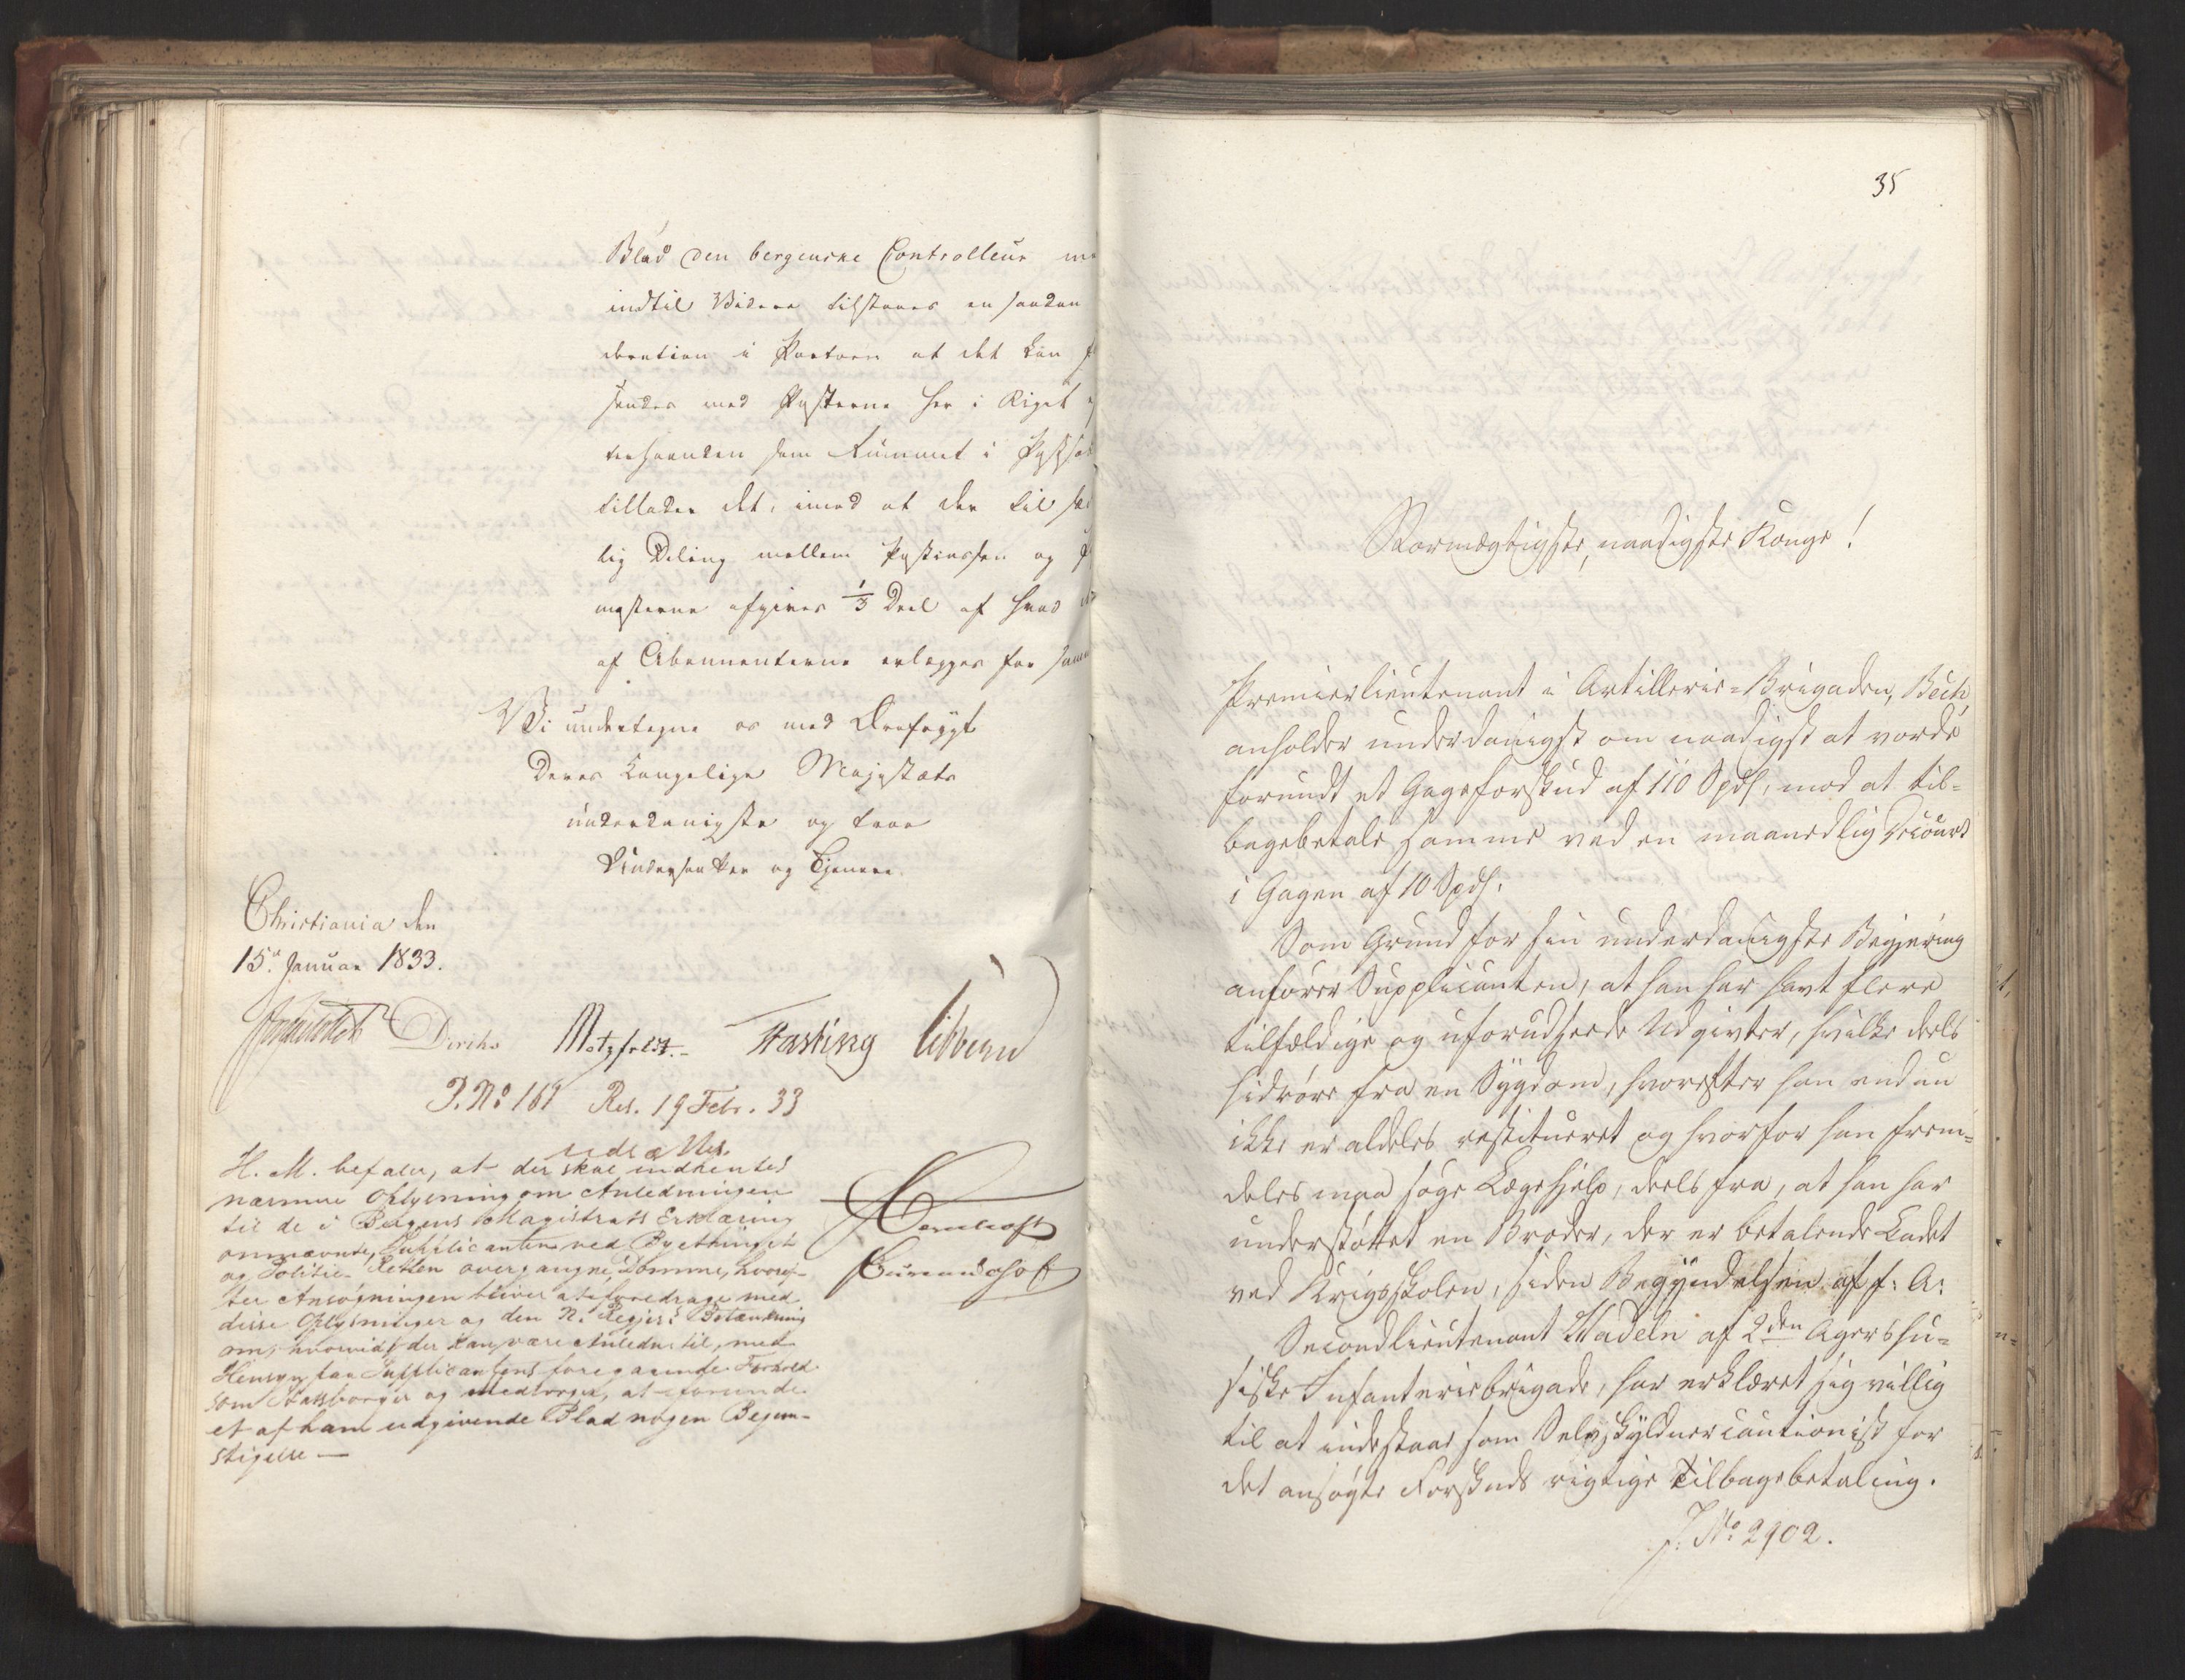 Blad den bergenske Controlleur
indtil Videre tilstaaes en saadan
deration i Portoen at det kan
sendes med Posterne her i Riget
tillader det, imod at der til
lig Deling mellem Postcassen og
mesterne afgives 1/3 Deel af hvad
af Abonnenterne erlægges for samme
Vi undertegne os med Ærefrygt
Deres Kongelige Majestæts
underdanigste og troe
Undersaatter og Tjenere.
Christiania den
15de Januar 1833.
Diriks Motzfeldt. Fasting Sibbern
P. No 161 Res. 19 Febr. 33
H. M. befaler, at der skal indhentes
nærmere Oplysning om Anledningen
til de i Bergens Magistrats Erklæring
ommævnte, Supplicanten ved Byethinget
og Politie-Retten overgangne, Domme, hvoref-
ter Ansøgningen bliver at foredrage med
disse Oplysninger og den N. Regjer.s Betænkning
om, hvorvidt der kan være Anledn. til, med
Hensyn paa Supplicantens foregaaende Forhold
som Statsborger og Medborger, at forunde
et af ham udgivende Blad nogen Begun-
stigelse —
35
Stormægtigste, naadigste Konge!
Premierlieutenant i Artillerie-Brigaden, Bech,
anholder underdanigst om naadigst at vorde
forundt et Gageforskud af 110 Spd, mod at til-
bagebetale samme ved en maanedlig Decourt
i Gagen af 10 Spd.
Som Grund for sin underdanigste Begjering
anfører Supplicanten, at han har havt flere
tilfældige og uforudseede Udgivter, hvilke deels
hidrøre fra en Sygdom, hvorefter han endnu
ikke er aldeles restitueret og hvorfor han frem-
deles maa søge Lægehjelp, deels fra, at han har
understøttet en Broder, der er betalende Cadet
ved Krigsskolen, siden Begyndelsen af f: A:
Secondlieutenant Wadeln af 2den Agershu-
siske Infanteriebrigade, har erklæret sig villig
til at indestaae som Selvskyldnercautionist for
det ansøgte Forskuds rigtige Tilbagebetaling.
J. No 2902.